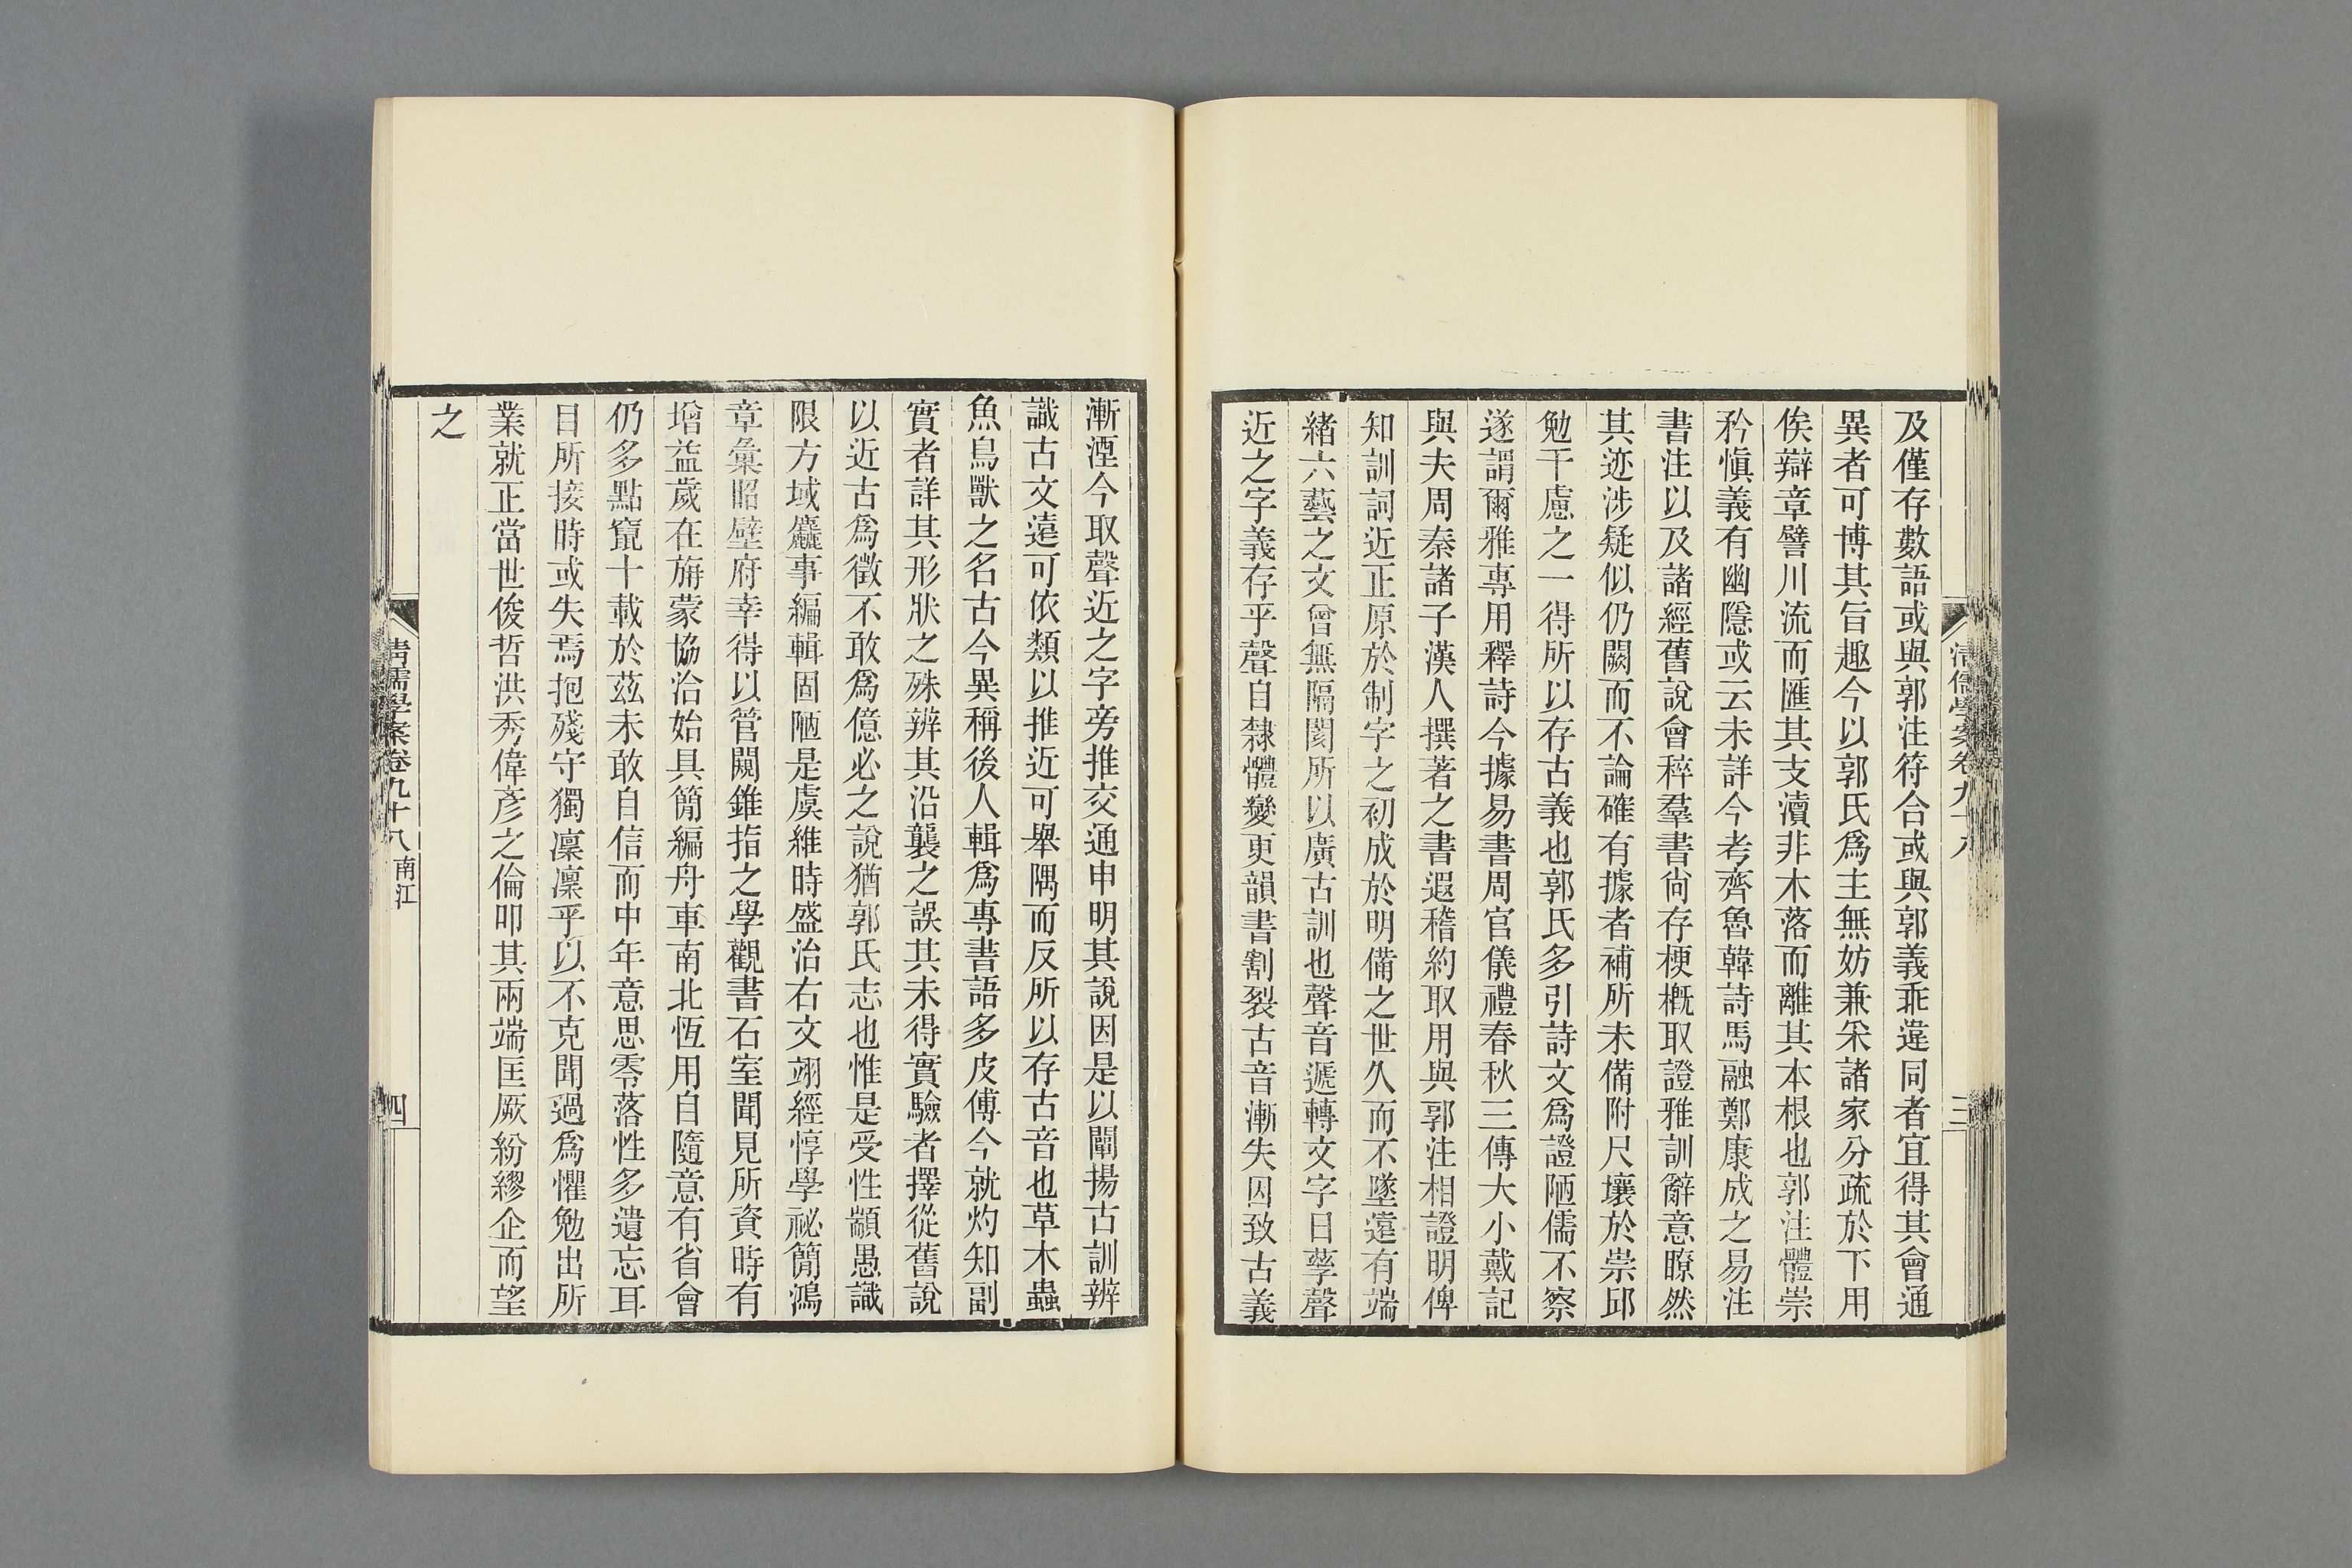 清儒學案卷九十八
三
及僅存數語或與郭注符合或與郭義乖違同者宜得其會通
異者可博其旨趣今以郭氏爲主無妨兼采諸家分疏於下用
俟辯章譬川流而匯其支瀆非木落而離其本根也郭注體崇
矜愼義有幽隱或云未詳今考齊魯韓詩馬融鄭康成之易注
書注以及諸經舊說會稡羣書尙存梗槪取證雅訓辭意瞭然
其迹涉疑似仍闕而不論確有據者補所未備附尺壤於崇邱
勉千慮之一得所以存古義也郭氏多引詩文爲證陋儒不察
遂謂爾雅專用釋詩今據易書周官儀禮春秋三傳大小戴記
與夫周秦諸子漢人撰著之書遐稽約取用與郭注相證明俾
知訓詞近正原於制字之初成於明備之世久而不墜遠有端
緒六藝之文曾無隔閡所以廣古訓也聲音遞轉文字日孳聲
近之字義存乎聲自隸體變更韻書割裂古音漸失因致古義
漸湮今取聲近之字旁推交通申明其說因是以闡揚古訓辨
識古文遠可依類以推近可舉隅而反所以存古音也草木蟲
魚鳥獸之名古今異稱後人輯爲專書語多皮傅今就灼知副
實者詳其形狀之殊辨其沿襲之誤其未得實驗者擇從舊說
以近古爲徵不敢爲億必之說猶郭氏志也惟是受性顓愚識
限方域麤事編輯固陋是虞維時盛治右文翊經惇學祕簡鴻
章彙昭壁府幸得以管闚錐指之學觀書石室聞見所資時有
增益歲在旃蒙協洽始具簡編舟車南北恆用自隨意有省會
仍多點竄十載於茲未敢自信而中年意思零落性多遺忘耳
目所接時或失焉抱殘守獨凜凜乎以不克聞過爲懼勉出所
業就正當世俊哲洪秀偉彥之倫叩其兩端匡厥紛繆企而望
之
清儒學案卷九十八 南江
四